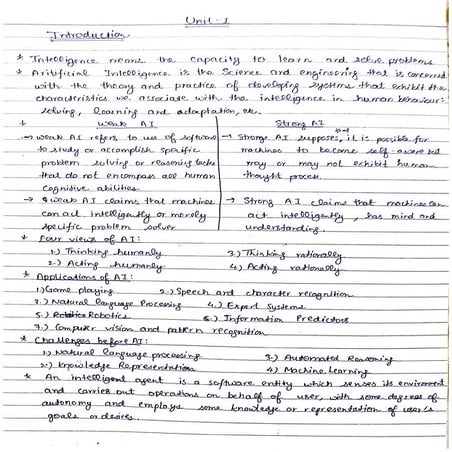 Unit-1
Introduction
* Intelligence means the capacity to learn and solve problems.
* Aritificial Intelligence is the Science and engineering that is concerned
with the theory and practice of developing systems that exhibit the
characteristics we associate with the intelligence in human behaviour:
solving, learning and adaptation, etc.
* Weak AI
Strong AI
→ Weak AI refers, to use of software
to study or accomplish specific
problem solving or reasoning tasks
that do not encompass all human
cognitive abilities.
→ Weak AI claims that machines
can act intelligently or merely
specific problem solver
→ Strong AI supposes, that it is possible for
machines to become self-aware but
may or may not exhibit human
thought process.
→ Strong AI claims that machines can
act intelligently, has mind and
understanding.
* Four views of AI:
1.) Thinking humanly 3.) Thinking rationally
2.) Acting humanly 4.) Acting rationally
* Applications of AI:
1.) Game playing 2.) Speech and character recognition
3.) Natural language Processing 4.) Expert Systems
5.) Robotics 6.) Information Predictors
7.) Computer vision and pattern recognition
* Challenges before AI:
1.) Natural language processing 3.) Automated Reasoning
2.) Knowledge Representation 4) Machine Learning
* An intelligent agent is a software entity which senses its enviroment
and carries out operations on behalf of user, with some degrees of
autonomy and employs some knowledge or representation of user's
goals or desires.